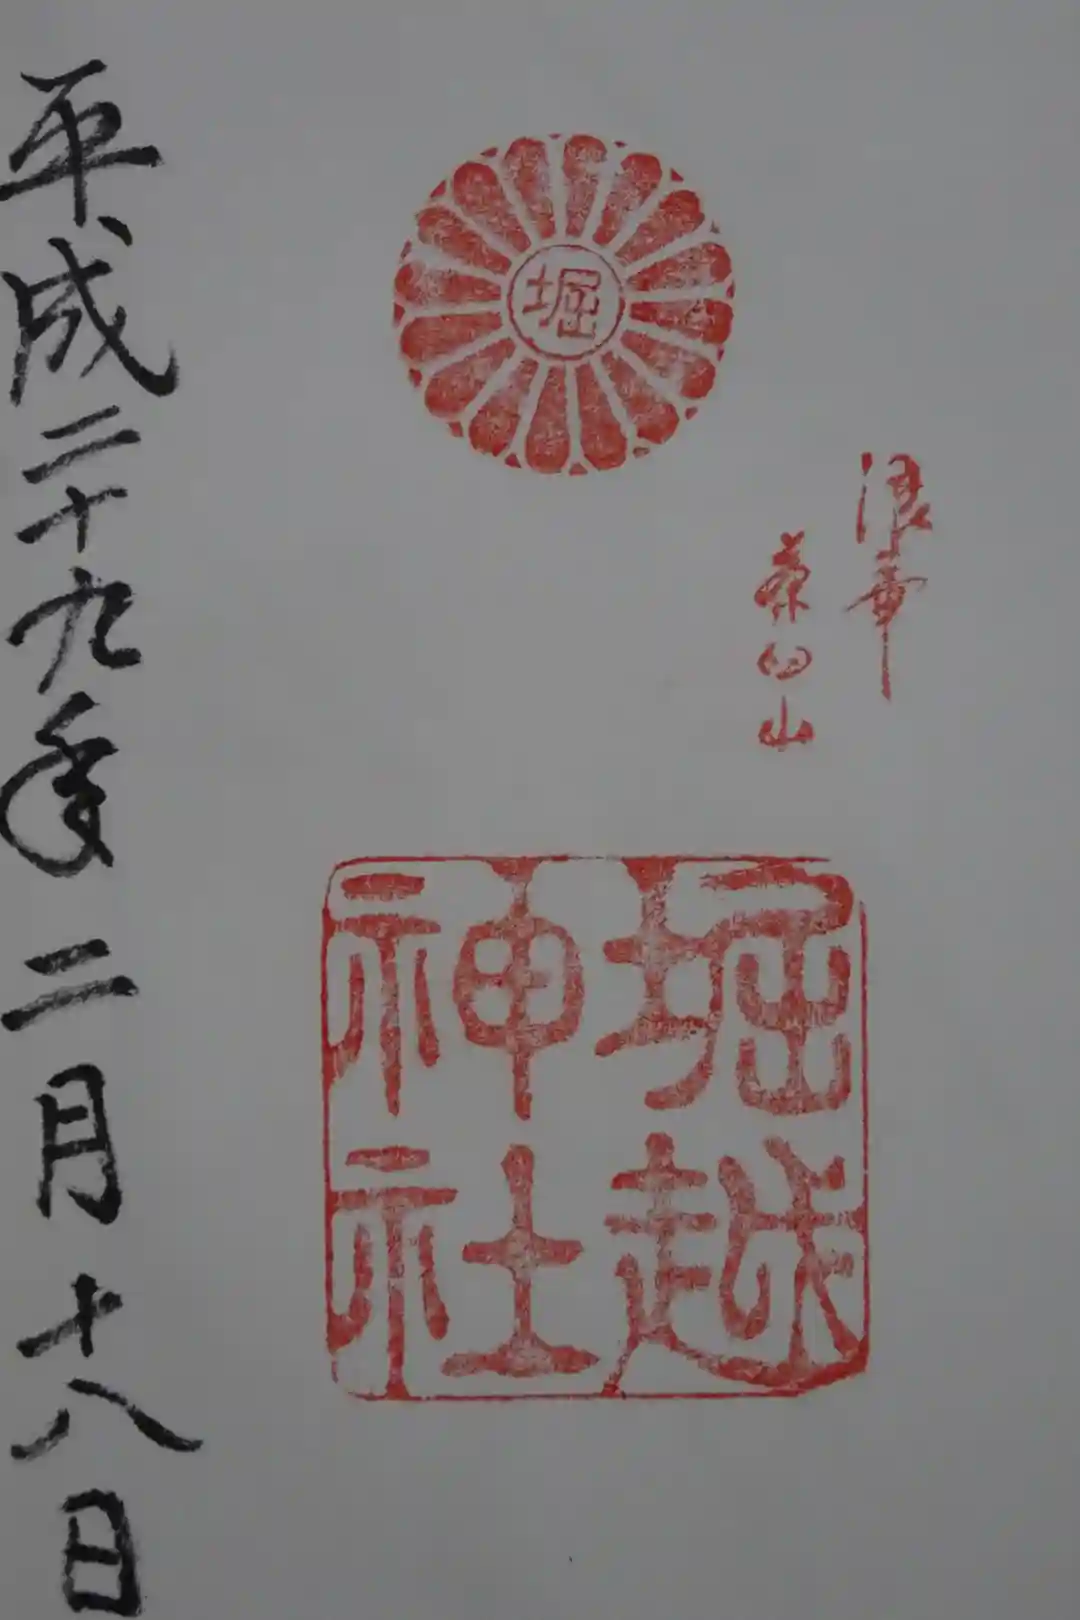 堀
浪華
茶臼山
堀越
神社
平成二十九年二月十八日